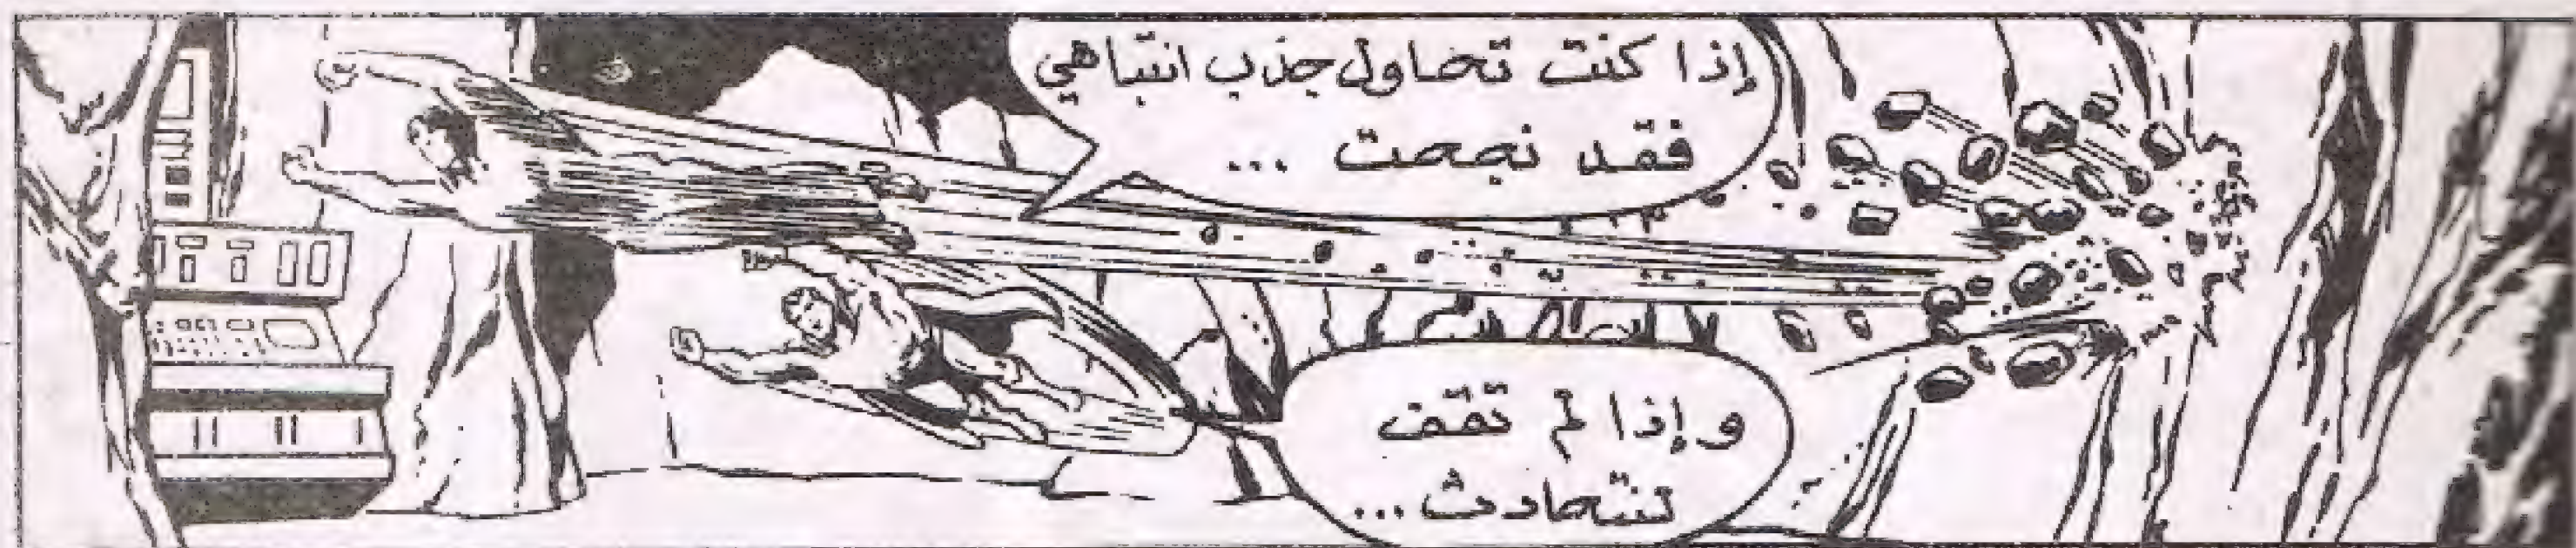 إذا كنت تحاول جذب انتباهي
فقد نجحت ...
و إذا لم تقف
لنتحادث ...